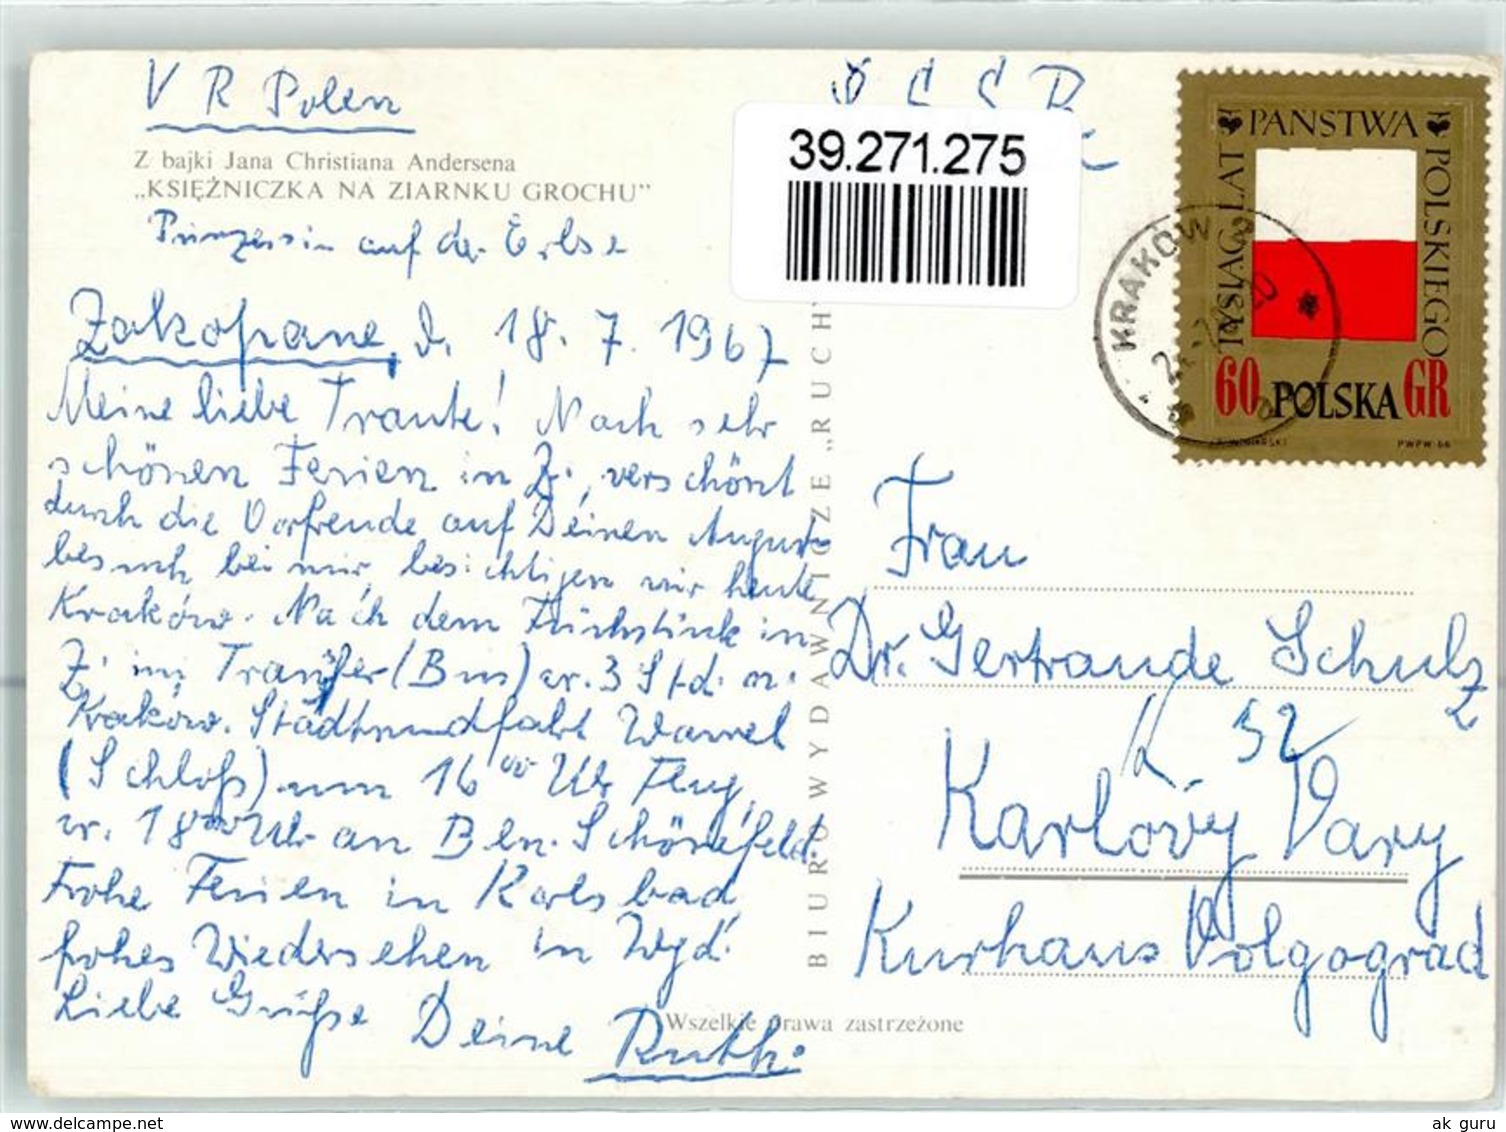 V R Polen
Z bajki Jana Christiana Andersena
„KSIĘŻNICZKA NA ZIARNKU GROCHU”
Prinzessin auf der Erbse
Zakopane, d. 18. 7. 1967
Meine liebe Traute! Nach sehr
schönen Ferien in Z., verschönt
durch die Vorfreude auf Deinen August
besuch bei mir, besichtigen wir heute
Kraków. Nach dem Frühstück in
Z. im Transfer (Bus) ca. 3 Std. n.
Kraków. Stadtrundfahrt Wawel
(Schloß) um 16⁰⁰ Uhr Flug,
ca. 18⁰⁰ Uhr an Bln. Schönefeld.
Frohe Ferien in Karlsbad
frohes Wiedersehen in Wgd!
Liebe Grüße Deine Ruth.
Wszelkie prawa zastrzeżone
BIURO WYDAWNICZE „RUCH”
Č S S R
39.271.275
TYSIĄC LAT PAŃSTWA POLSKIEGO
60 POLSKA GR
PWPW-66
KRAKÓW 2
Frau
Dr. Gertraude Schulz
Z. 32
Karlovy Vary
Kurhaus Volgograd
delcampe.net
ak_guru